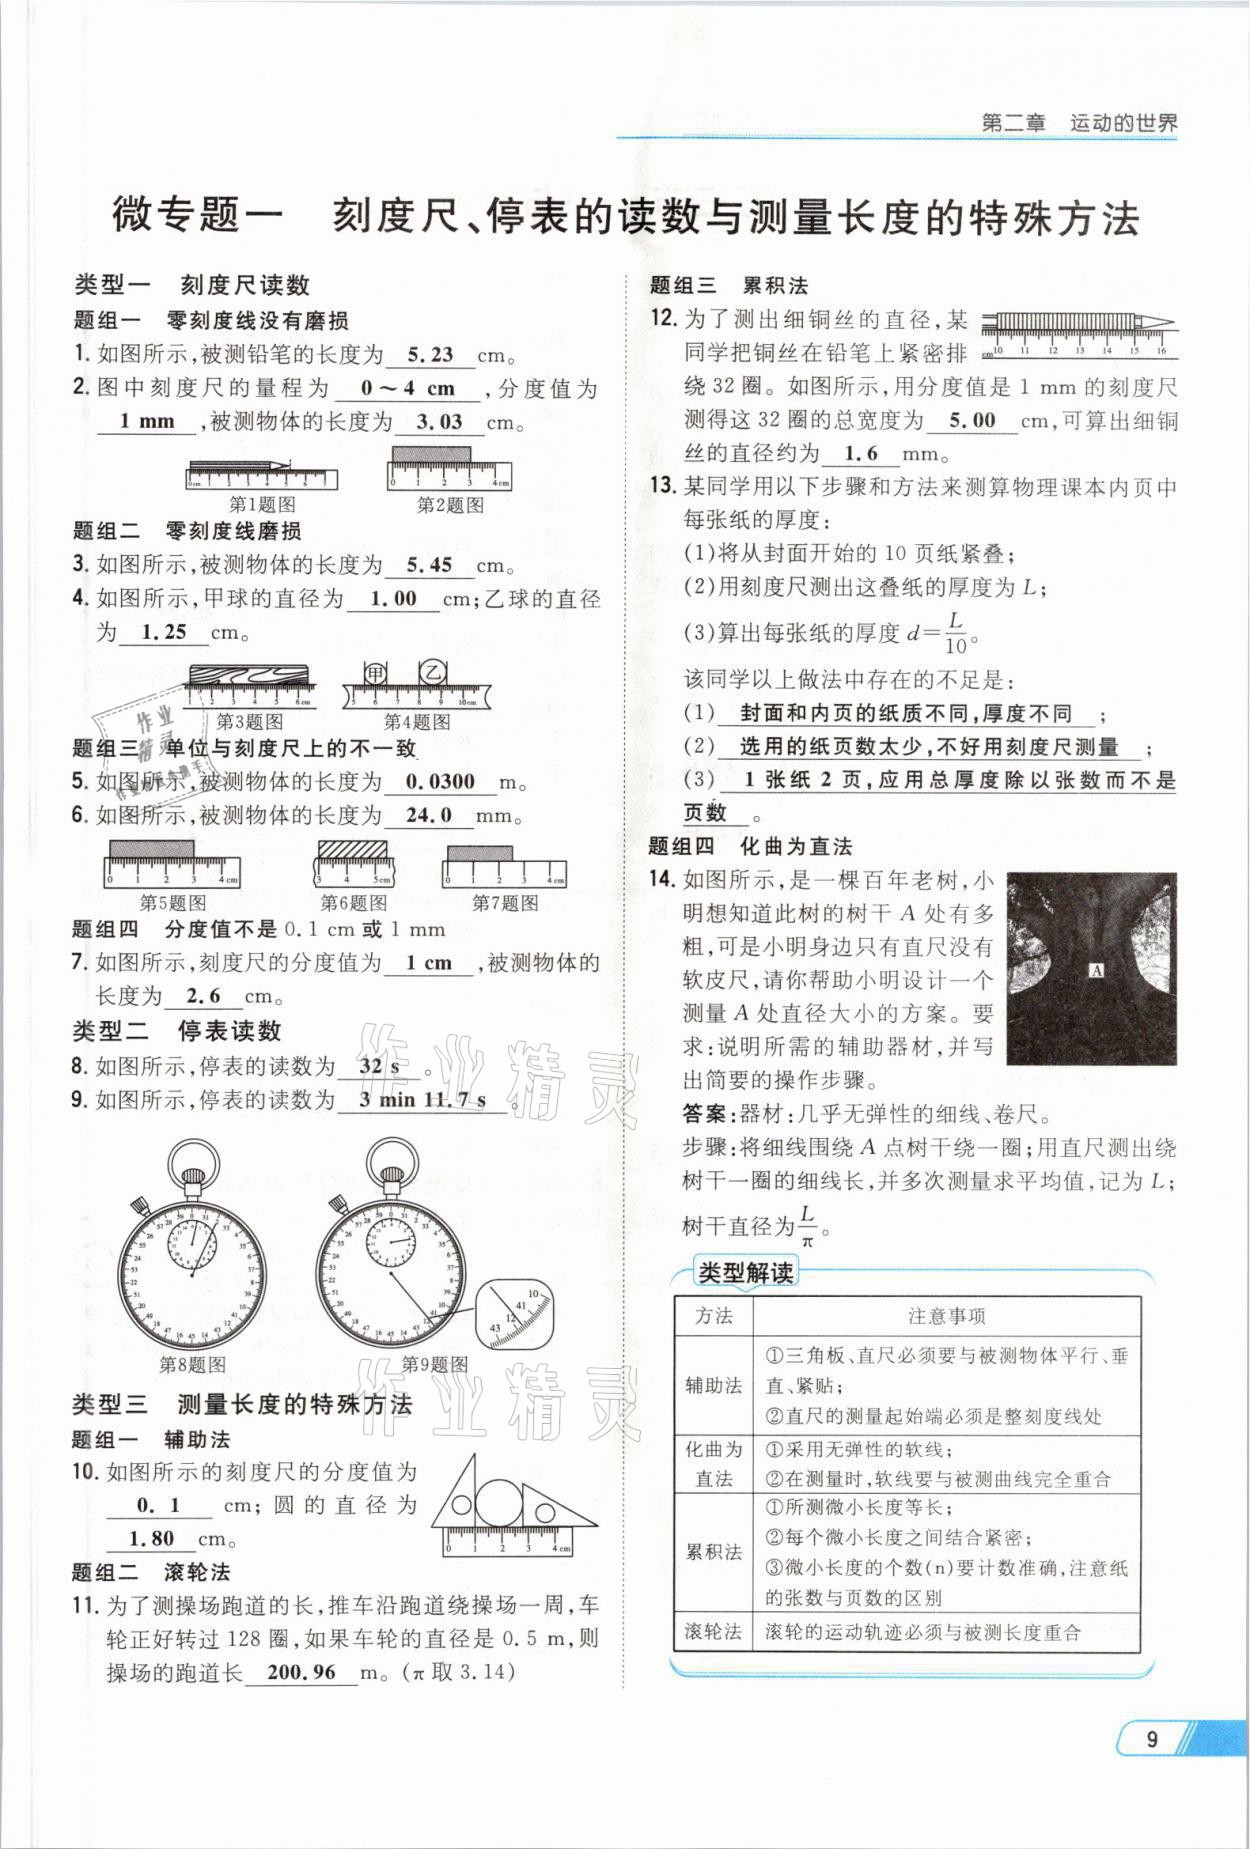 第二章 运动的世界
微专题一 刻度尺、停表的读数与测量长度的特殊方法
类型一 刻度尺读数
题组一 零刻度线没有磨损
1. 如图所示,被测铅笔的长度为 5.23 cm。
2. 图中刻度尺的量程为 0～4 cm ,分度值为
1 mm ,被测物体的长度为 3.03 cm。
第1题图 第2题图
题组二 零刻度线磨损
3. 如图所示,被测物体的长度为 5.45 cm。
4. 如图所示,甲球的直径为 1.00 cm;乙球的直径
为 1.25 cm。
甲 乙
第3题图 第4题图
题组三 单位与刻度尺上的不一致
5. 如图所示,被测物体的长度为 0.0300 m。
6. 如图所示,被测物体的长度为 24.0 mm。
第5题图 第6题图 第7题图
题组四 分度值不是 0.1 cm 或 1 mm
7. 如图所示,刻度尺的分度值为 1 cm ,被测物体的
长度为 2.6 cm。
类型二 停表读数
8. 如图所示,停表的读数为 32 s 。
9. 如图所示,停表的读数为 3 min 11.7 s 。
第8题图 第9题图
类型三 测量长度的特殊方法
题组一 辅助法
10. 如图所示的刻度尺的分度值为
0.1 cm;圆的直径为
1.80 cm。
题组二 滚轮法
11. 为了测操场跑道的长,推车沿跑道绕操场一周,车
轮正好转过 128 圈,如果车轮的直径是 0.5 m,则
操场的跑道长 200.96 m。(π 取 3.14)
题组三 累积法
12. 为了测出细铜丝的直径,某
同学把铜丝在铅笔上紧密排
绕 32 圈。如图所示,用分度值是 1 mm 的刻度尺
测得这 32 圈的总宽度为 5.00 cm,可算出细铜
丝的直径约为 1.6 mm。
13. 某同学用以下步骤和方法来测算物理课本内页中
每张纸的厚度:
(1)将从封面开始的 10 页纸紧叠;
(2)用刻度尺测出这叠纸的厚度为 L;
(3)算出每张纸的厚度 d=L/10。
该同学以上做法中存在的不足是:
(1) 封面和内页的纸质不同,厚度不同 ;
(2) 选用的纸页数太少,不好用刻度尺测量 ;
(3) 1 张纸 2 页,应用总厚度除以张数而不是
页数 。
题组四 化曲为直法
14. 如图所示,是一棵百年老树,小
明想知道此树的树干 A 处有多
粗,可是小明身边只有直尺没有
软皮尺,请你帮助小明设计一个
测量 A 处直径大小的方案。要
求:说明所需的辅助器材,并写
出简要的操作步骤。
A
答案:器材:几乎无弹性的细线、卷尺。
步骤:将细线围绕 A 点树干绕一圈;用直尺测出绕
树干一圈的细线长,并多次测量求平均值,记为 L;
树干直径为L/π。
类型解读
方法 注意事项
辅助法 ①三角板、直尺必须要与被测物体平行、垂
直、紧贴;
②直尺的测量起始端必须是整刻度线处
化曲为直法 ①采用无弹性的软线;
②在测量时,软线要与被测曲线完全重合
累积法 ①所测微小长度等长;
②每个微小长度之间结合紧密;
③微小长度的个数(n)要计数准确,注意纸
的张数与页数的区别
滚轮法 滚轮的运动轨迹必须与被测长度重合
9
作业精灵
作业精灵